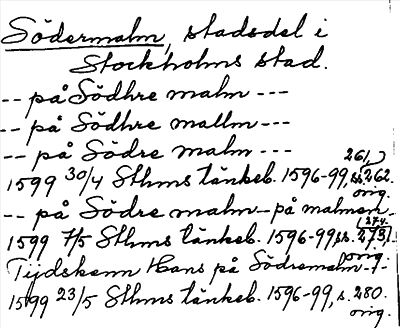 Södermalm, stadsdel i
Stockholms stad.
-- på Södhre malm ---
-- på Södhre mallm ---
-- på Södre malm ---
1599 30/4 Sthms tänkeb. 1596-99, ss. 261, 262. orig.
-- på Södre malm - på malmen -
1599 7/5 Sthms tänkeb. 1596-99, ss. 273, 274. orig.
Tijdskenn Hans på Södremalm - -
1599 23/5 Sthms tänkeb. 1596-99, s. 280.
orig.